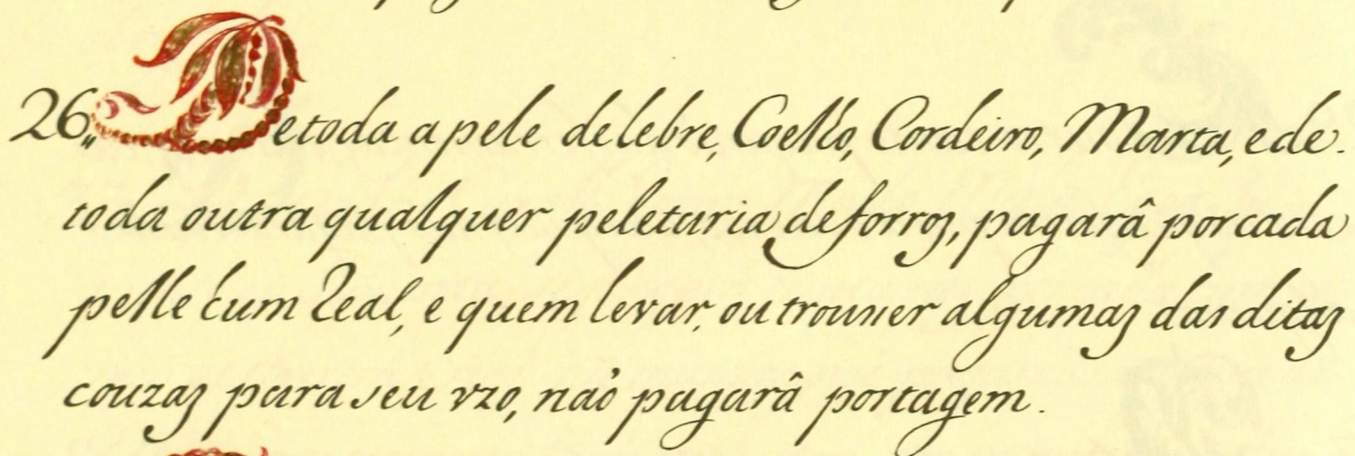 26,, De toda a pele de lebre, Coelho, Cordeiro, Marta, e de.
toda outra qualquer peletaria de forros, pagarâ por cada
pelle hum Real, e quem levar, ou trouxer algumas das ditas
couzas para seu vzo, naõ pagarâ portagem.